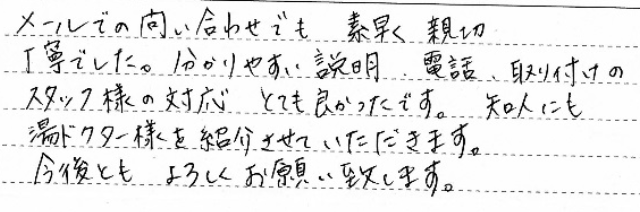 メールでの問い合わせでも 素早く 親切
丁寧でした。分かりやすい説明、電話、取り付けの
スタッフ様の対応 とても良かったです。 知人にも
湯ドクター様を紹介させていただきます。
今後とも よろしくお願い致します。